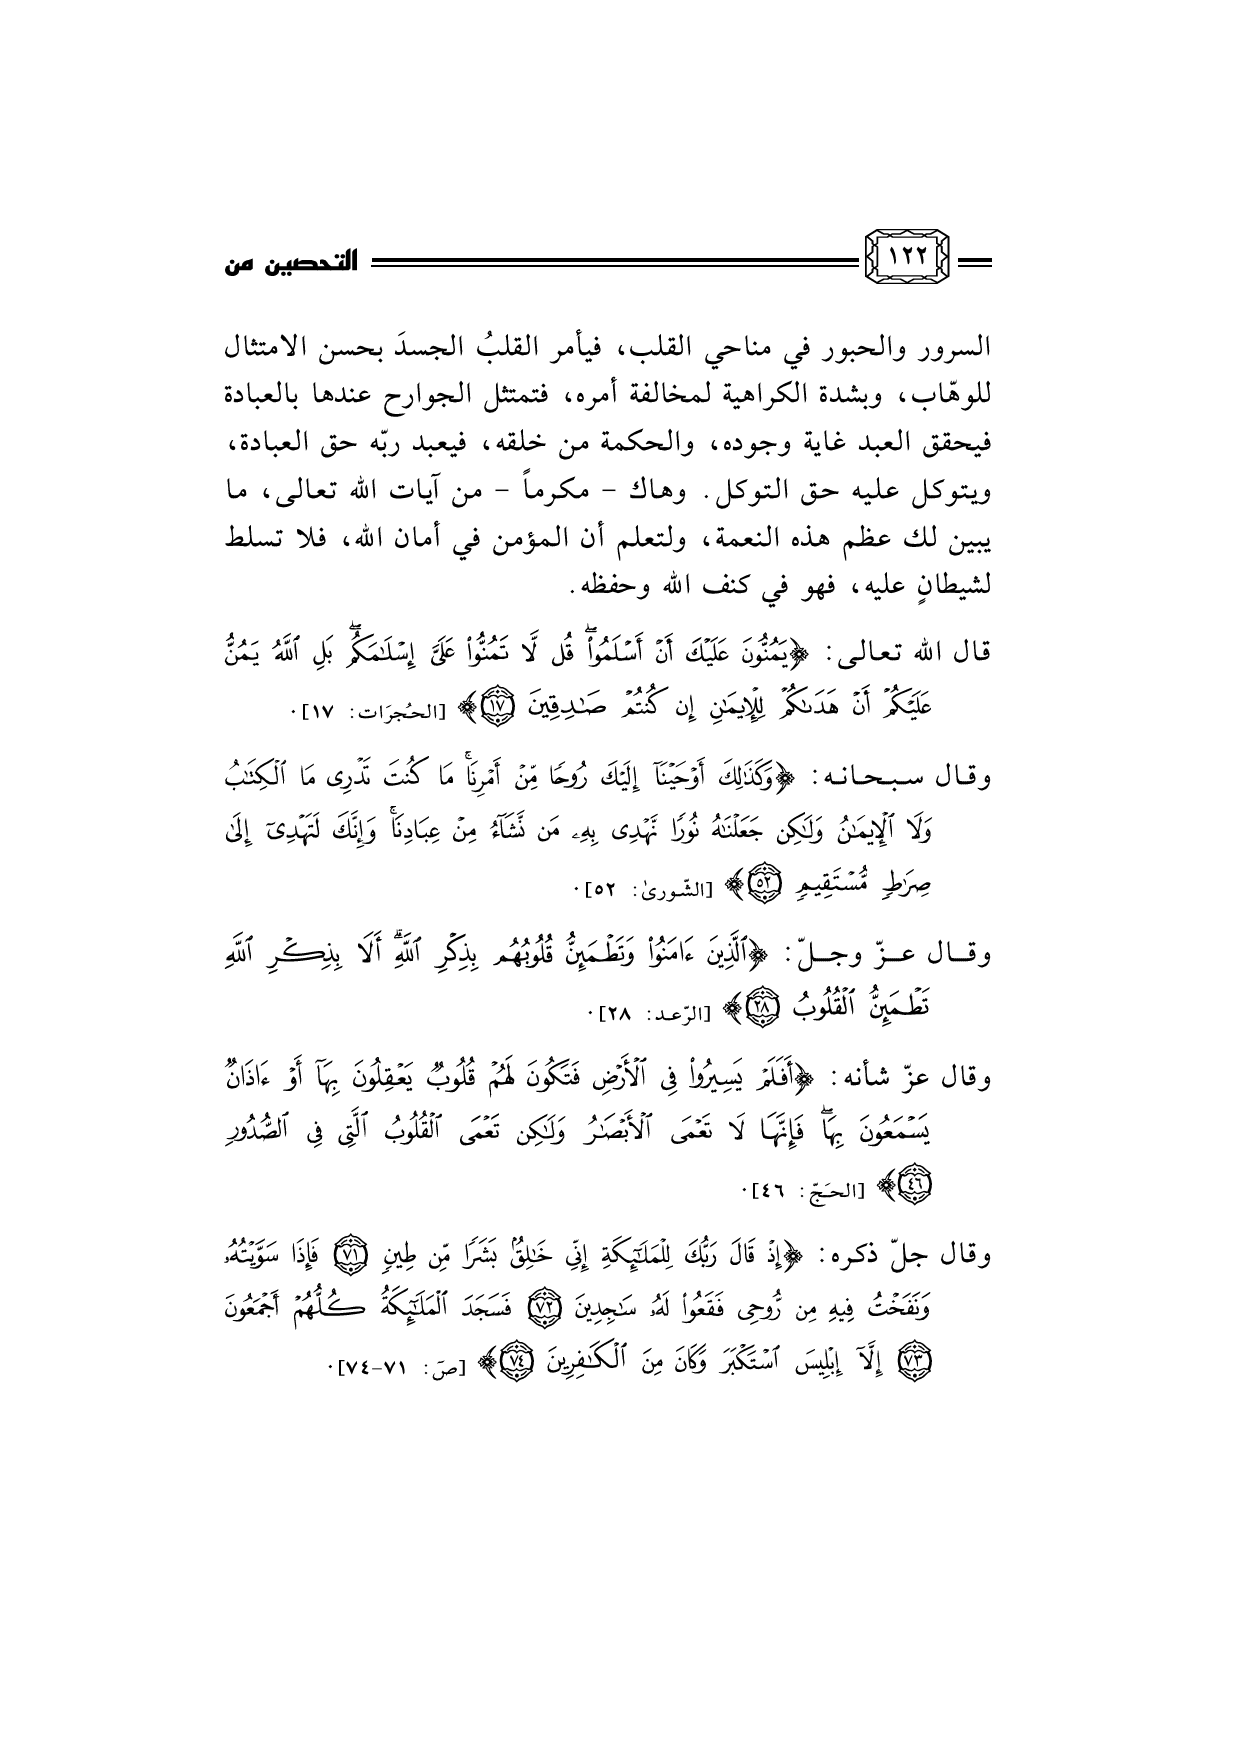 ١٢٢ التحصين من
السرور والحبور في مناحي القلب، فيأمر القلبُ الجسدَ بحسن الامتثال
للوهّاب، وبشدة الكراهية لمخالفة أمره، فتمتثل الجوارح عندها بالعبادة
فيحقق العبد غاية وجوده، والحكمة من خلقه، فيعبد ربّه حق العبادة،
ويتوكل عليه حق التوكل. وهاك – مكرماً – من آيات الله تعالى، ما
يبين لك عظم هذه النعمة، ولتعلم أن المؤمن في أمان الله، فلا تسلط
لشيطانٍ عليه، فهو في كنف الله وحفظه.
قال الله تعالى: ﴿يَمُنُّونَ عَلَيْكَ أَنْ أَسْلَمُواْۖ قُل لَّا تَمُنُّواْ عَلَىَّ إِسْلَٰمَكُمۖ بَلِ ٱللَّهُ يَمُنُّ
عَلَيْكُمْ أَنْ هَدَىٰكُمْ لِلْإِيمَٰنِ إِن كُنتُمْ صَٰدِقِينَ ١٧﴾ [الحُجرَات: ١٧].
وقال سبحانه: ﴿وَكَذَٰلِكَ أَوْحَيْنَآ إِلَيْكَ رُوحًا مِّنْ أَمْرِنَاۚ مَا كُنتَ تَدْرِى مَا ٱلْكِتَٰبُ
وَلَا ٱلْإِيمَٰنُ وَلَٰكِن جَعَلْنَٰهُ نُورًا نَّهْدِى بِهِۦ مَن نَّشَآءُ مِنْ عِبَادِنَاۚ وَإِنَّكَ لَتَهْدِىٓ إِلَىٰ
صِرَٰطٍ مُّسْتَقِيمٍ ٥٢﴾ [الشّورىٰ: ٥٢].
وقال عزّ وجلّ: ﴿ٱلَّذِينَ ءَامَنُواْ وَتَطْمَئِنُّ قُلُوبُهُم بِذِكْرِ ٱللَّهِۗ أَلَا بِذِكْرِ ٱللَّهِ
تَطْمَئِنُّ ٱلْقُلُوبُ ٢٨﴾ [الرّعد: ٢٨].
وقال عزّ شأنه: ﴿أَفَلَمْ يَسِيرُواْ فِى ٱلْأَرْضِ فَتَكُونَ لَهُمْ قُلُوبٌ يَعْقِلُونَ بِهَآ أَوْ ءَاذَانٌ
يَسْمَعُونَ بِهَاۖ فَإِنَّهَا لَا تَعْمَى ٱلْأَبْصَٰرُ وَلَٰكِن تَعْمَى ٱلْقُلُوبُ ٱلَّتِى فِى ٱلصُّدُورِ
٤٦﴾ [الحَجّ: ٤٦].
وقال جلّ ذكره: ﴿إِذْ قَالَ رَبُّكَ لِلْمَلَٰٓئِكَةِ إِنِّى خَٰلِقٌۢ بَشَرًا مِّن طِينٍ ٧١ فَإِذَا سَوَّيْتُهُۥ
وَنَفَخْتُ فِيهِ مِن رُّوحِى فَقَعُواْ لَهُۥ سَٰجِدِينَ ٧٢ فَسَجَدَ ٱلْمَلَٰٓئِكَةُ كُلُّهُمْ أَجْمَعُونَ
٧٣ إِلَّآ إِبْلِيسَ ٱسْتَكْبَرَ وَكَانَ مِنَ ٱلْكَٰفِرِينَ ٧٤﴾ [صَ: ٧١-٧٤].